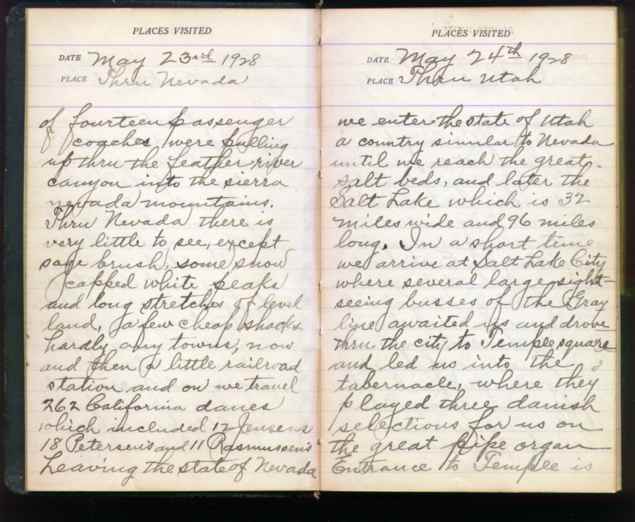 PLACES VISITED
DATE May 23rd 1928
PLACE Thru Nevada
of fourteen passenger
coaches, were pulling
up thru the Feather river
canyon into the sierra
nevada mountains.
Thru Nevada there is
very little to see, except
sage brush, some snow
capped white peaks
and long stretches of level
land, a few cheap shacks
hardly any towns, now
and then a little railroad
station and on we travel
262 California danes
which included 12 Jensens
18 Petersens and 11 Rasmussens
Leaving the state of Nevada
PLACES VISITED
DATE May 24th 1928
PLACE Thru Utah
we enter the state of Utah
a country simular to Nevada
until we reach the great
salt beds, and later the
Salt Lake which is 32
miles wide and 96 miles
long. In a short time
we arrive at Salt Lake City
where several large sight-
seeing busses of the Gray
line awaited us and drove
thru the city to Temple square
and led us into the
tabernacle, where they
played three danish
selections for us on
the great pipe organ
Entrance to Temple is